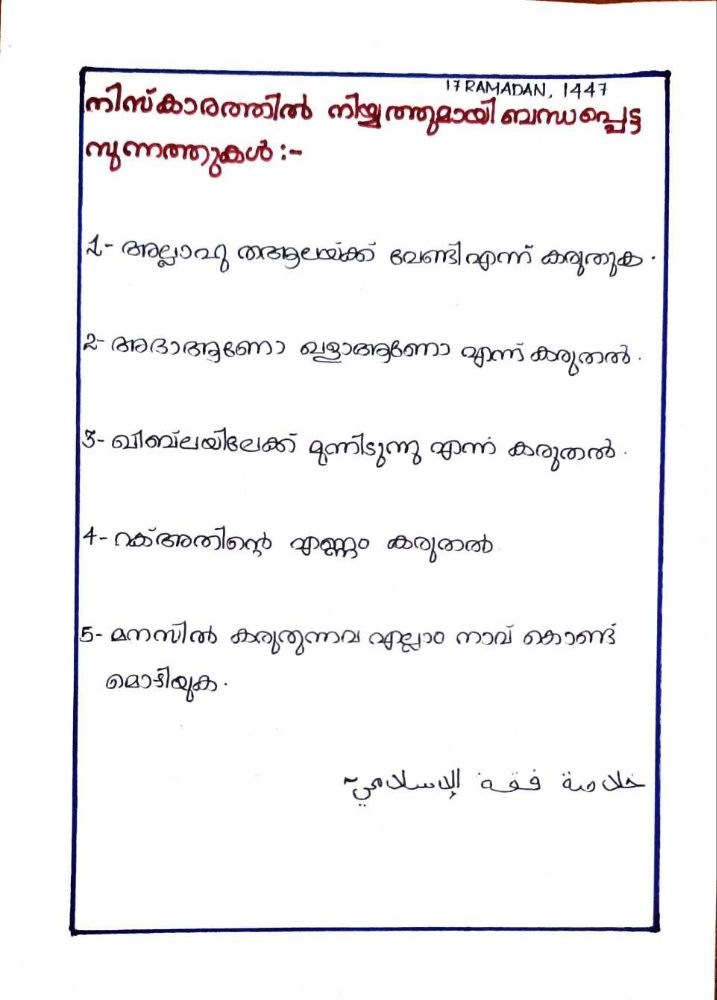 17 RAMADAN, 1447
നിസ്കാരത്തിൽ നിയ്യത്തുമായി ബന്ധപ്പെട്ട
സുന്നത്തുകൾ :-
1- അല്ലാഹു തആലയ്ക്ക് വേണ്ടി എന്ന് കരുതുക.
2- അദാആണോ ഖളാആണോ എന്ന് കരുതൽ.
3- ഖിബ്ലയിലേക്ക് മുന്നിടുന്നു എന്ന് കരുതൽ.
4- റക്അതിന്റെ എണ്ണം കരുതൽ
5- മനസിൽ കരുതുന്നവ എല്ലാം നാവ് കൊണ്ട്
മൊഴിയുക.
خلاصة فقة الإسلامي~